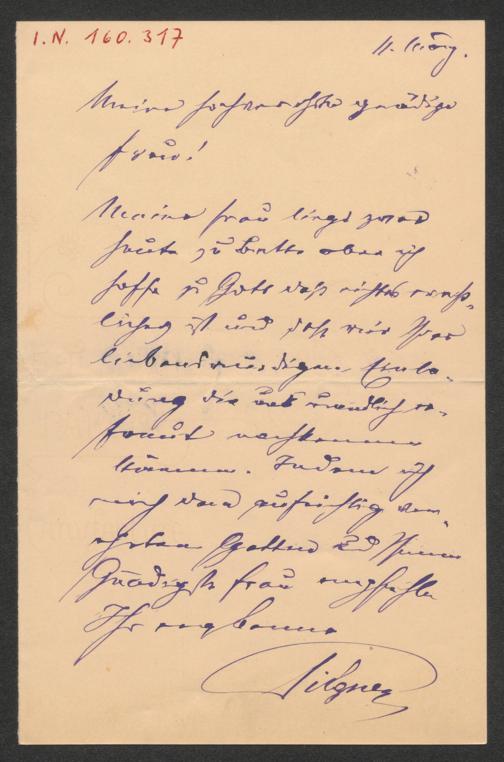 I.N. 160.317
11. März.
Meine hochverehrte gnädige
Frau!
Meine Frau liegt zwar
heute zu Bette aber ich
hoffe zu Gott daß nichts ernst-
liches ist und daß wir Ihrer
liebenswürdigen Einla-
dung die uns unendlich er-
freut nachkommen
können. Indem ich
mich dem aufrichtig ver-
ehrten Gatten und Ihnen
Gnädigste Frau empfehle
Ihr ergebener
Tilgner